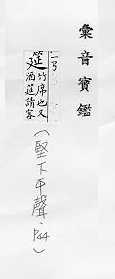 彙音寶鑑
一ㄢ
筵
竹席也又
酒筵請客
(堅下平聲·P44)